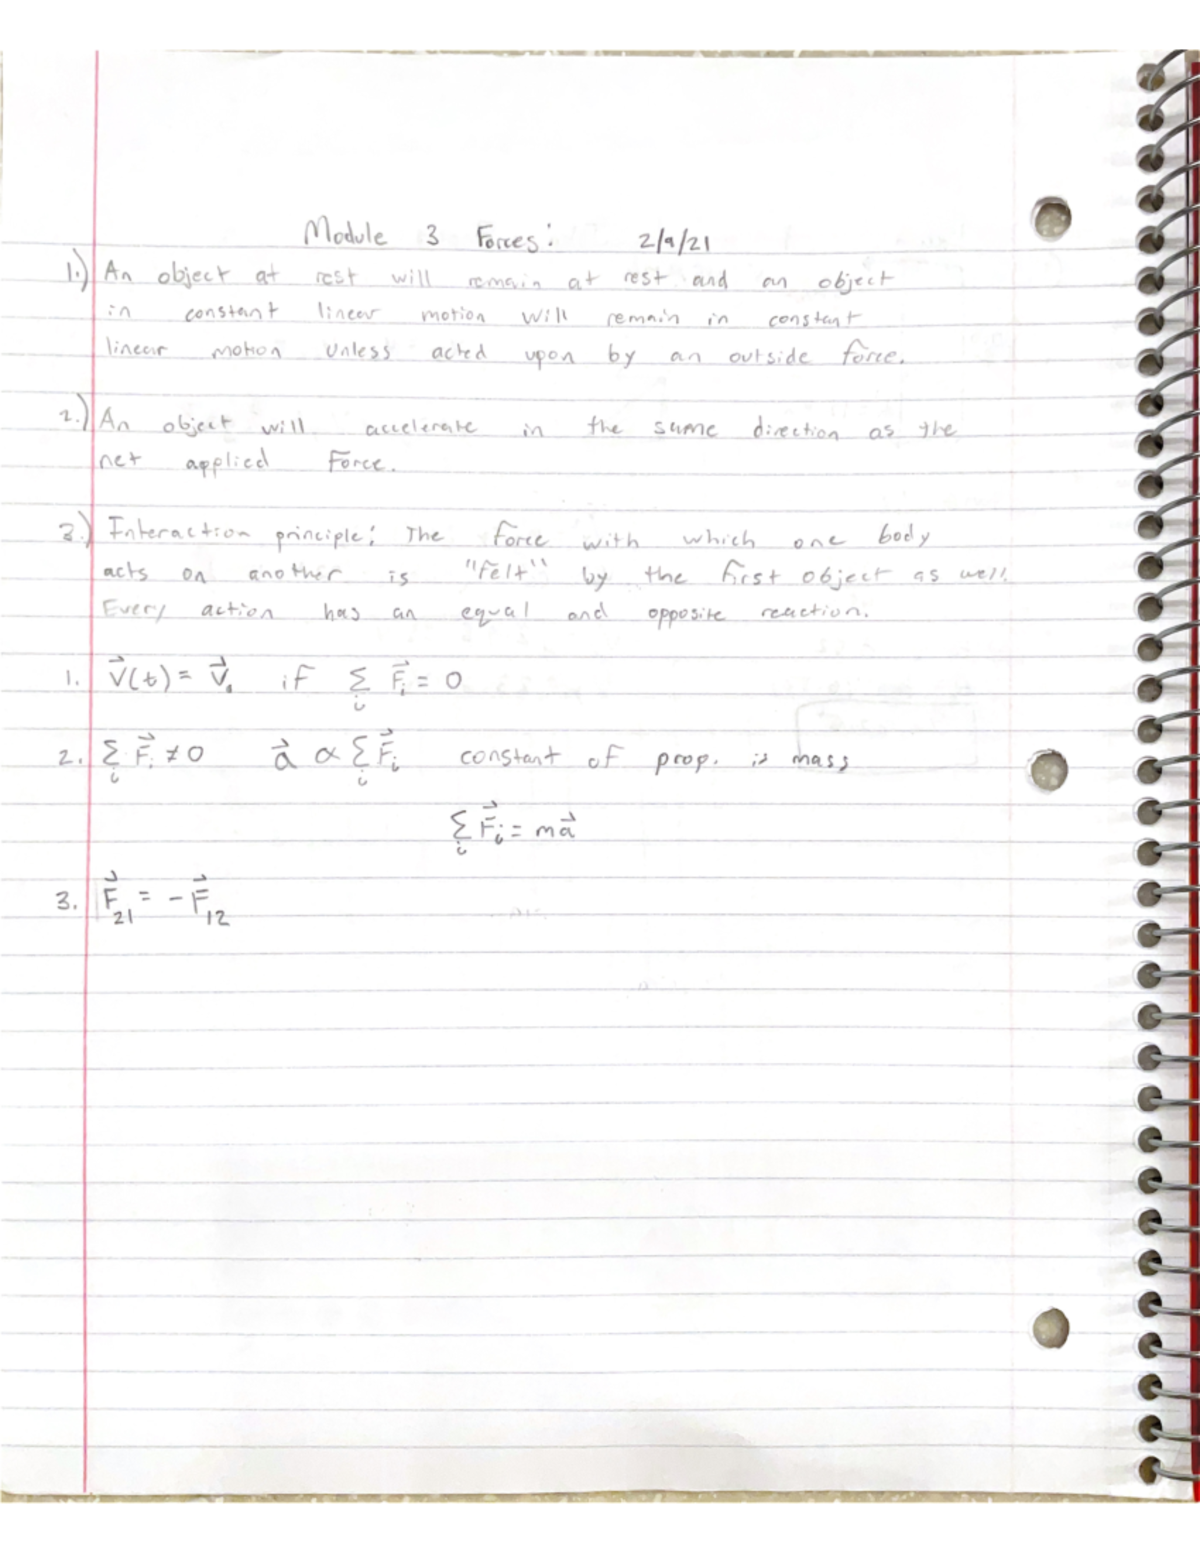 Module 3 Forces: 2/9/21
1.) An object at rest will remain at rest and an object
in constant linear motion will remain in constant
linear motion unless acted upon by an outside force.
2.) An object will accelerate in the same direction as the
net applied Force.
3.) Interaction principle: The force with which one body
acts on another is "felt" by the first object as well.
Every action has an equal and opposite reaction.
1. v⃗(t) = v⃗₀ if Σᵢ F⃗ᵢ = 0
2. Σᵢ F⃗ᵢ ≠ 0 a⃗ ∝ Σᵢ F⃗ᵢ constant of prop. is mass
Σᵢ F⃗ᵢ = ma⃗
3. F⃗₂₁ = -F⃗₁₂